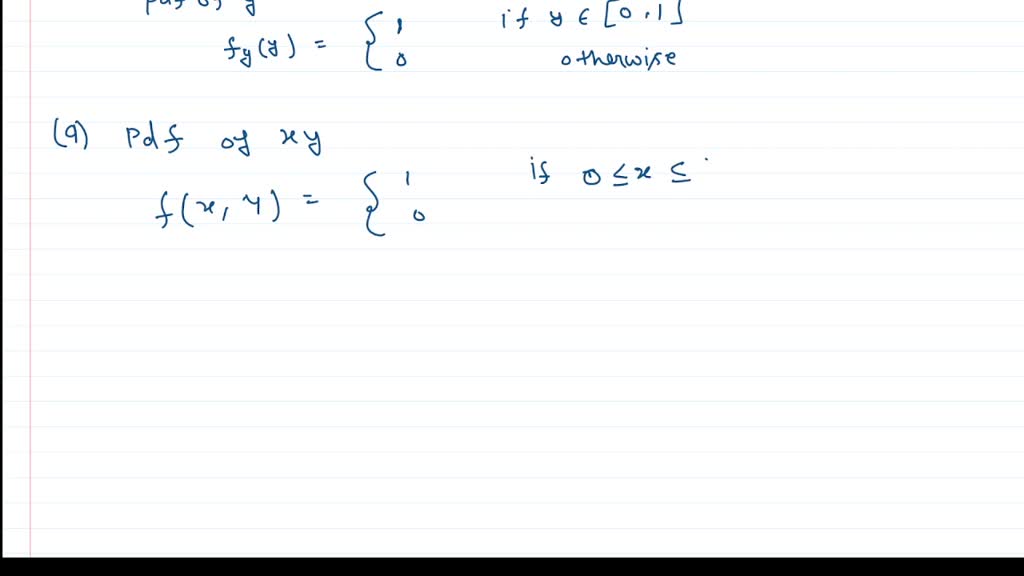 pdf of y
fy(y) = { 1 if y ∈ [0,1]
0 otherwise
(a) Pdf of xy
f(x, y) = { 1 if 0 ≤ x ≤
0